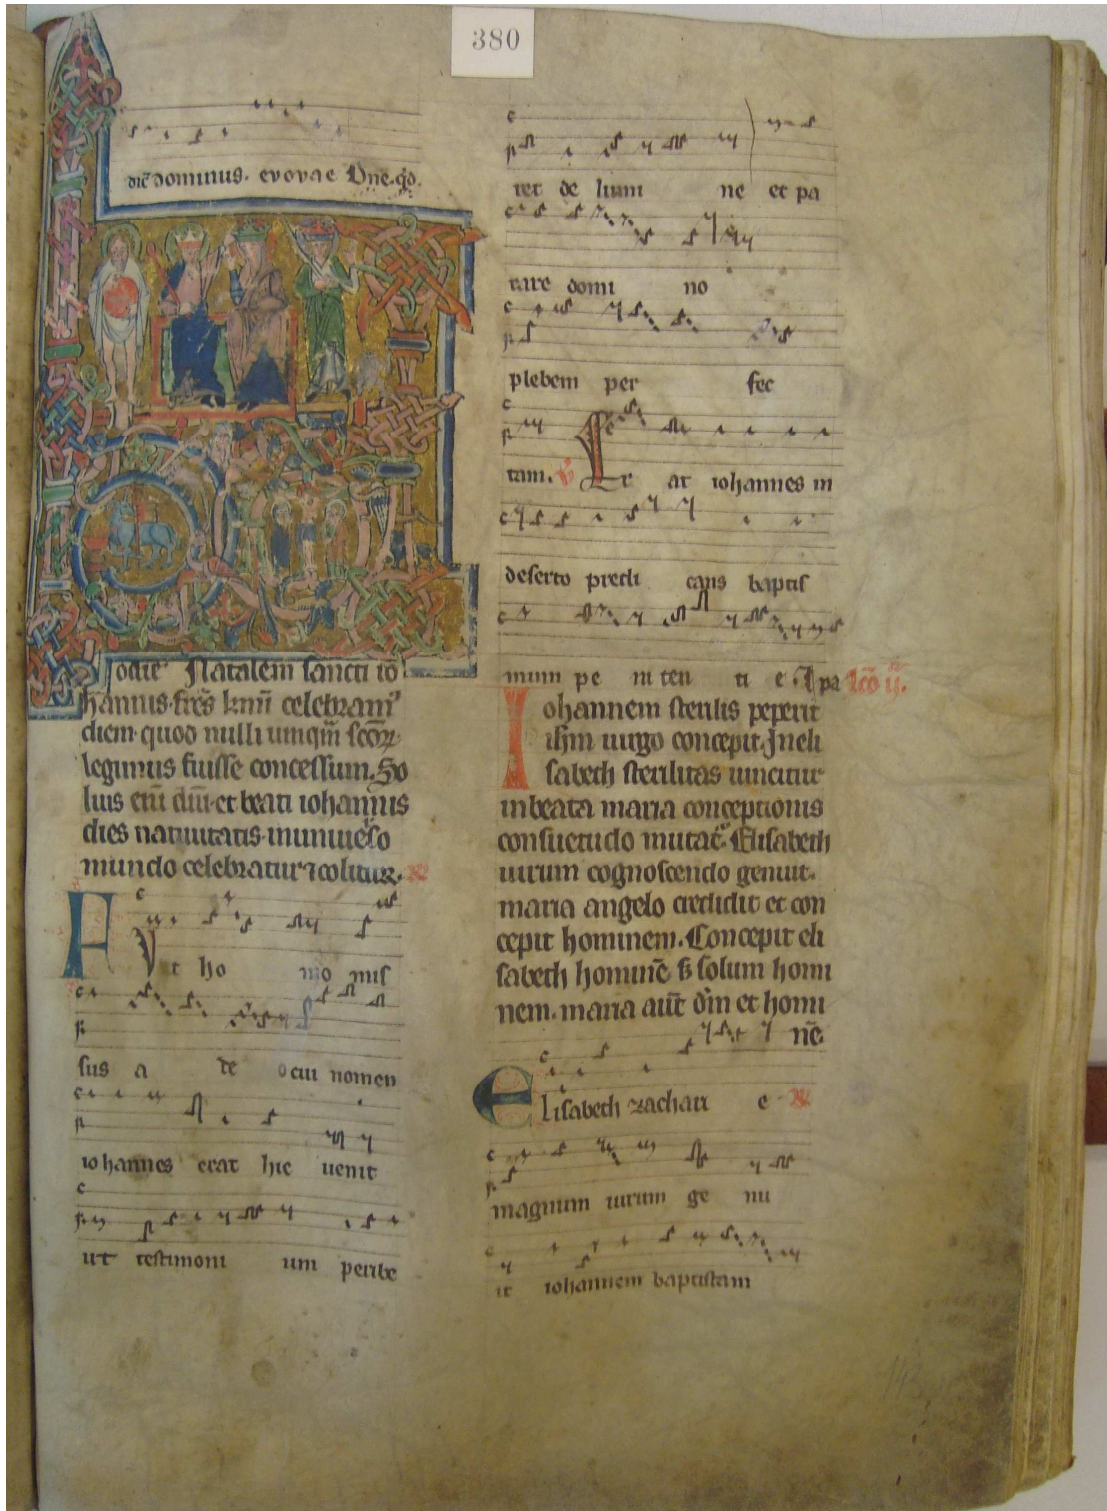 380
dic̄ dominus. evovae Dne. q̄d.
odie Natalem sancti io
hannis. fr̄es kmī celebram᷒
diem. quod nulli umqm̄ sc̄oꝝ
legimus fuisse concessum. So
lius eni᷒ dn̄i. et beati iohannis
dies natiuitatis. inuniuerso
mundo celebratur ⁊ colitur. R
F
Vt ho mo mis
sus a de o cui nomen
iohannes erat hic uenit
ut testimoni um perhibe
ret de lumi ne et pa
rare domi no
plebem per fec
tam. V Er at iohannes in
deserto predi cans baptis
mum pe ni ten ti e. Ipa Lc̄o ij.
Iohannem sterilis peperit
ih̄m uirgo concepit. Ineli
sabeth sterilitas uincitur
inbeata maria conceptionis
consuetudo mutat᷒. Elisabeth
uirum cognoscendo genuit.
maria angelo credidit et con
cepit hominem. Concepit eli
sabeth hominē s; solum homi
nem. maria aut̄ dm̄ et homi
nē.
Elisabeth zachari e R
magnum uirum ge nu
it iohannem baptistam
143